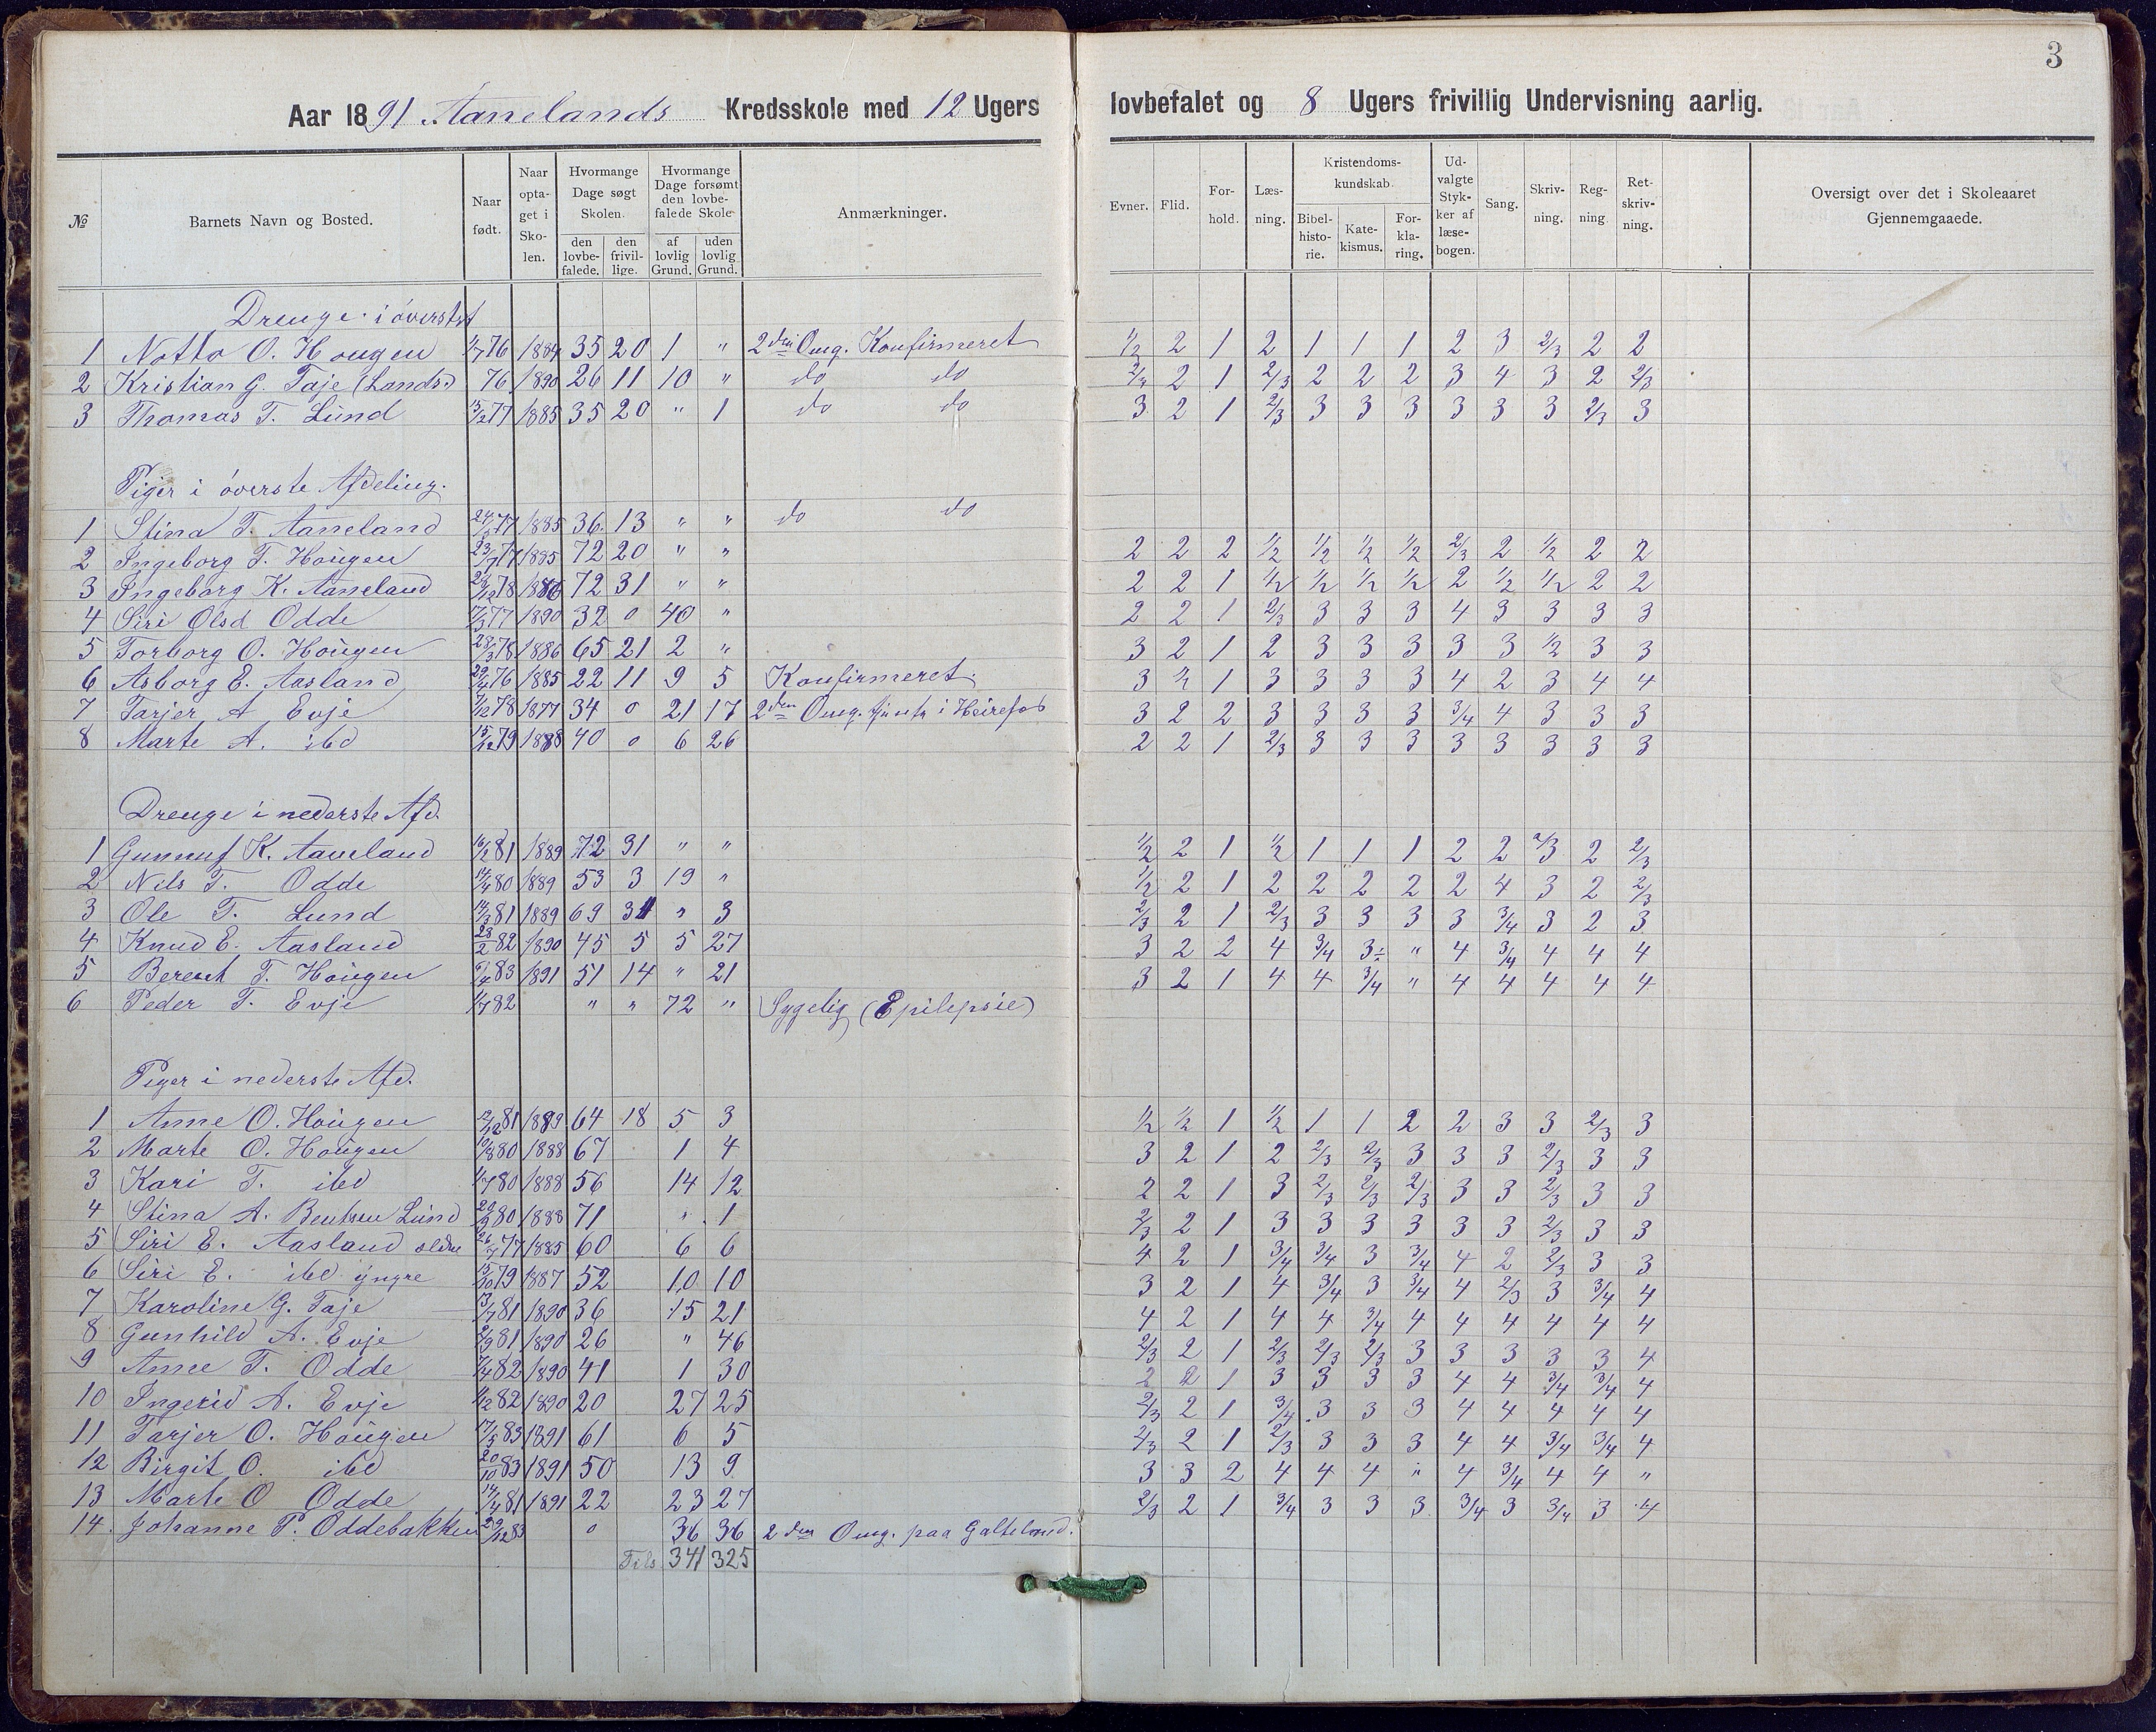 3
Aar 1891 Aanelands Kredsskole med 12 Ugers lovbefalet og 8 Ugers frivillig Undervisning aarlig.
№ | Barnets Navn og Bosted. | Naar født. | Naar optaget i Skolen. | Hvormange Dage søgt Skolen. den lovbefalede. den frivillige. | Hvormange Dage forsømt den lovbefalede Skole af lovlig Grund. uden lovlig Grund. | Anmærkninger. | Evner. | Flid. | Forhold. | Læsning. | Kristendomskundskab. Bibelhistorie. Katekismus. Forklaring. | Udvalgte Stykker af læsebogen. | Sang. | Skrivning. | Regning | Retskrivning. | Oversigt over det i Skoleaaret Gjennemgaaede.
Drenge i øverste
1 Notto O. Hougen 1/7 76 1884 35 20 1 " 2den Omg. Konfirmeret 1/2 2 1 2 1 1 1 2 3 2/3 2 2
2 Kristian G. Taje (Lands.) 76 1890 26 11 10 " do do 2/3 2 1 2/3 2 2 2 3 4 3 2 2/3
3 Thomas T. Lund 15/2 77 1885 35 20 " 1 do do 3 2 1 2/3 3 3 3 3 3 3 2/3 3
Piger i øverste Afdeling.
1 Stina T. Aaneland 77 1885 36 13 " " do do
2 Ingeborg T. Hougen 23/7 77 1885 72 20 " " 2 2 2 1/2 1/2 1/2 1/2 2/3 2 1/2 2 2
3 Ingeborg K. Aaneland 78 1886 72 31 " " 2 2 1 1/2 1/2 1/2 1/2 2 1/2 1/2 2 2
4 Siri Olsd Odde 17/3 77 1890 32 0 40 " 2 2 1 2/3 3 3 3 4 3 3 3 3
5 Torborg O. Hougen 28/3 78 1886 65 21 2 " 3 2 1 2 3 3 3 3 3 1/2 3 3
6 Asborg E. Aasland 29/4 76 1885 22 11 9 5 Konfirmeret. 3 1/2 1 3 3 3 3 4 2 3 4 4
7 Tarjer A Evje 7/12 78 1877 34 0 21 17 2den Omg. i Heirefos 3 2 2 3 3 3 3 3/4 4 3 3 3
8 Marte A. ibd 15/12 79 1888 40 0 6 26 2 2 1 2/3 3 3 3 3 3 3 3 3
Drenge i nederste Afd.
1 Gunnuf K. Aaneland 16/2 81 1889 72 31 " " 1/2 2 1 1/2 1 1 1 2 2 2/3 2 2/3
2 Nils T. Odde 14/4 80 1889 53 3 19 " 1/2 2 1 2 2 2 2 2 4 3 2 2/3
3 Ole T. Lund 14/3 81 1889 69 31 " 3 2/3 2 1 2/3 3 3 3 3 3/4 3 2 3
4 Knud E. Aasland 28/2 82 1890 45 5 5 27 3 2 2 4 3/4 3÷ " 4 3/4 4 4 4
5 Berent T. Hougen 6/4 83 1891 51 14 " 21 3 2 1 4 4 3/4 " 4 4 4 4 4
6 Peder T. Evje 1/7 82 " " 72 " Sygelig (Epilepsie)
Piger i nederste Afd.
1 Anne O. Hougen 12/12 81 1889 64 18 5 3 1/2 1/2 1 1/2 1 1 2 2 3 3 2/3 3
2 Marte O. Hougen 10/8 80 1888 67 1 4 3 2 1 2 2/3 2/3 3 3 3 2/3 3 3
3 Kari T. ibd 1/7 80 1888 56 14 12 2 2 1 3 2/3 2/3 2/3 3 3 2/3 3 3
4 Stina A. Bentsen Lund 20/9 80 1888 71 " 1 2/3 2 1 3 3 3 3 3 3 2/3 3 3
5 Siri E. Aasland ældre 26/7 77 1885 60 6 6 4 2 1 3/4 3/4 3 3/4 4 2 2/3 3 3
6 Siri E. ibd yngre 15/10 79 1887 52 10 10 3 2 1 4 3/4 3 3/4 4 2/3 3 3/4 4
7 Karoline G. Taje 13/7 81 1890 36 15 21 4 2 1 4 4 3/4 4 4 4 4 4 4
8 Gunhild A. Evje 2/9 81 1890 26 " 46 2/3 2 1 2/3 2/3 2/3 3 3 3 3 3 4
9 Anne T. Odde 7/4 82 1890 41 1 30 2 2 1 3 3 3 3 4 4 3/4 3/4 4
10 Ingerid A. Evje 1/12 82 1890 20 27 25 2/3 2 1 3/4 3 3 3 4 4 4 4 4
11 Tarjer O. Hougen 17/5 83 1891 61 6 5 2/3 2 1 2/3 3 3 3 4 4 3/4 3/4 4
12 Birgit O. ibd 20/10 83 1891 50 13 9 3 3 2 4 4 4 " 4 3/4 4 4 "
13 Marte O Odde 14/4 81 1891 22 23 27 2/3 2 1 3/4 3 3 3 3/4 3 3/4 3 4
14. Johanne P. Oddebakken 29/12 83 0 36 36 2den Omg. paa Galteland.
Tils 341 325